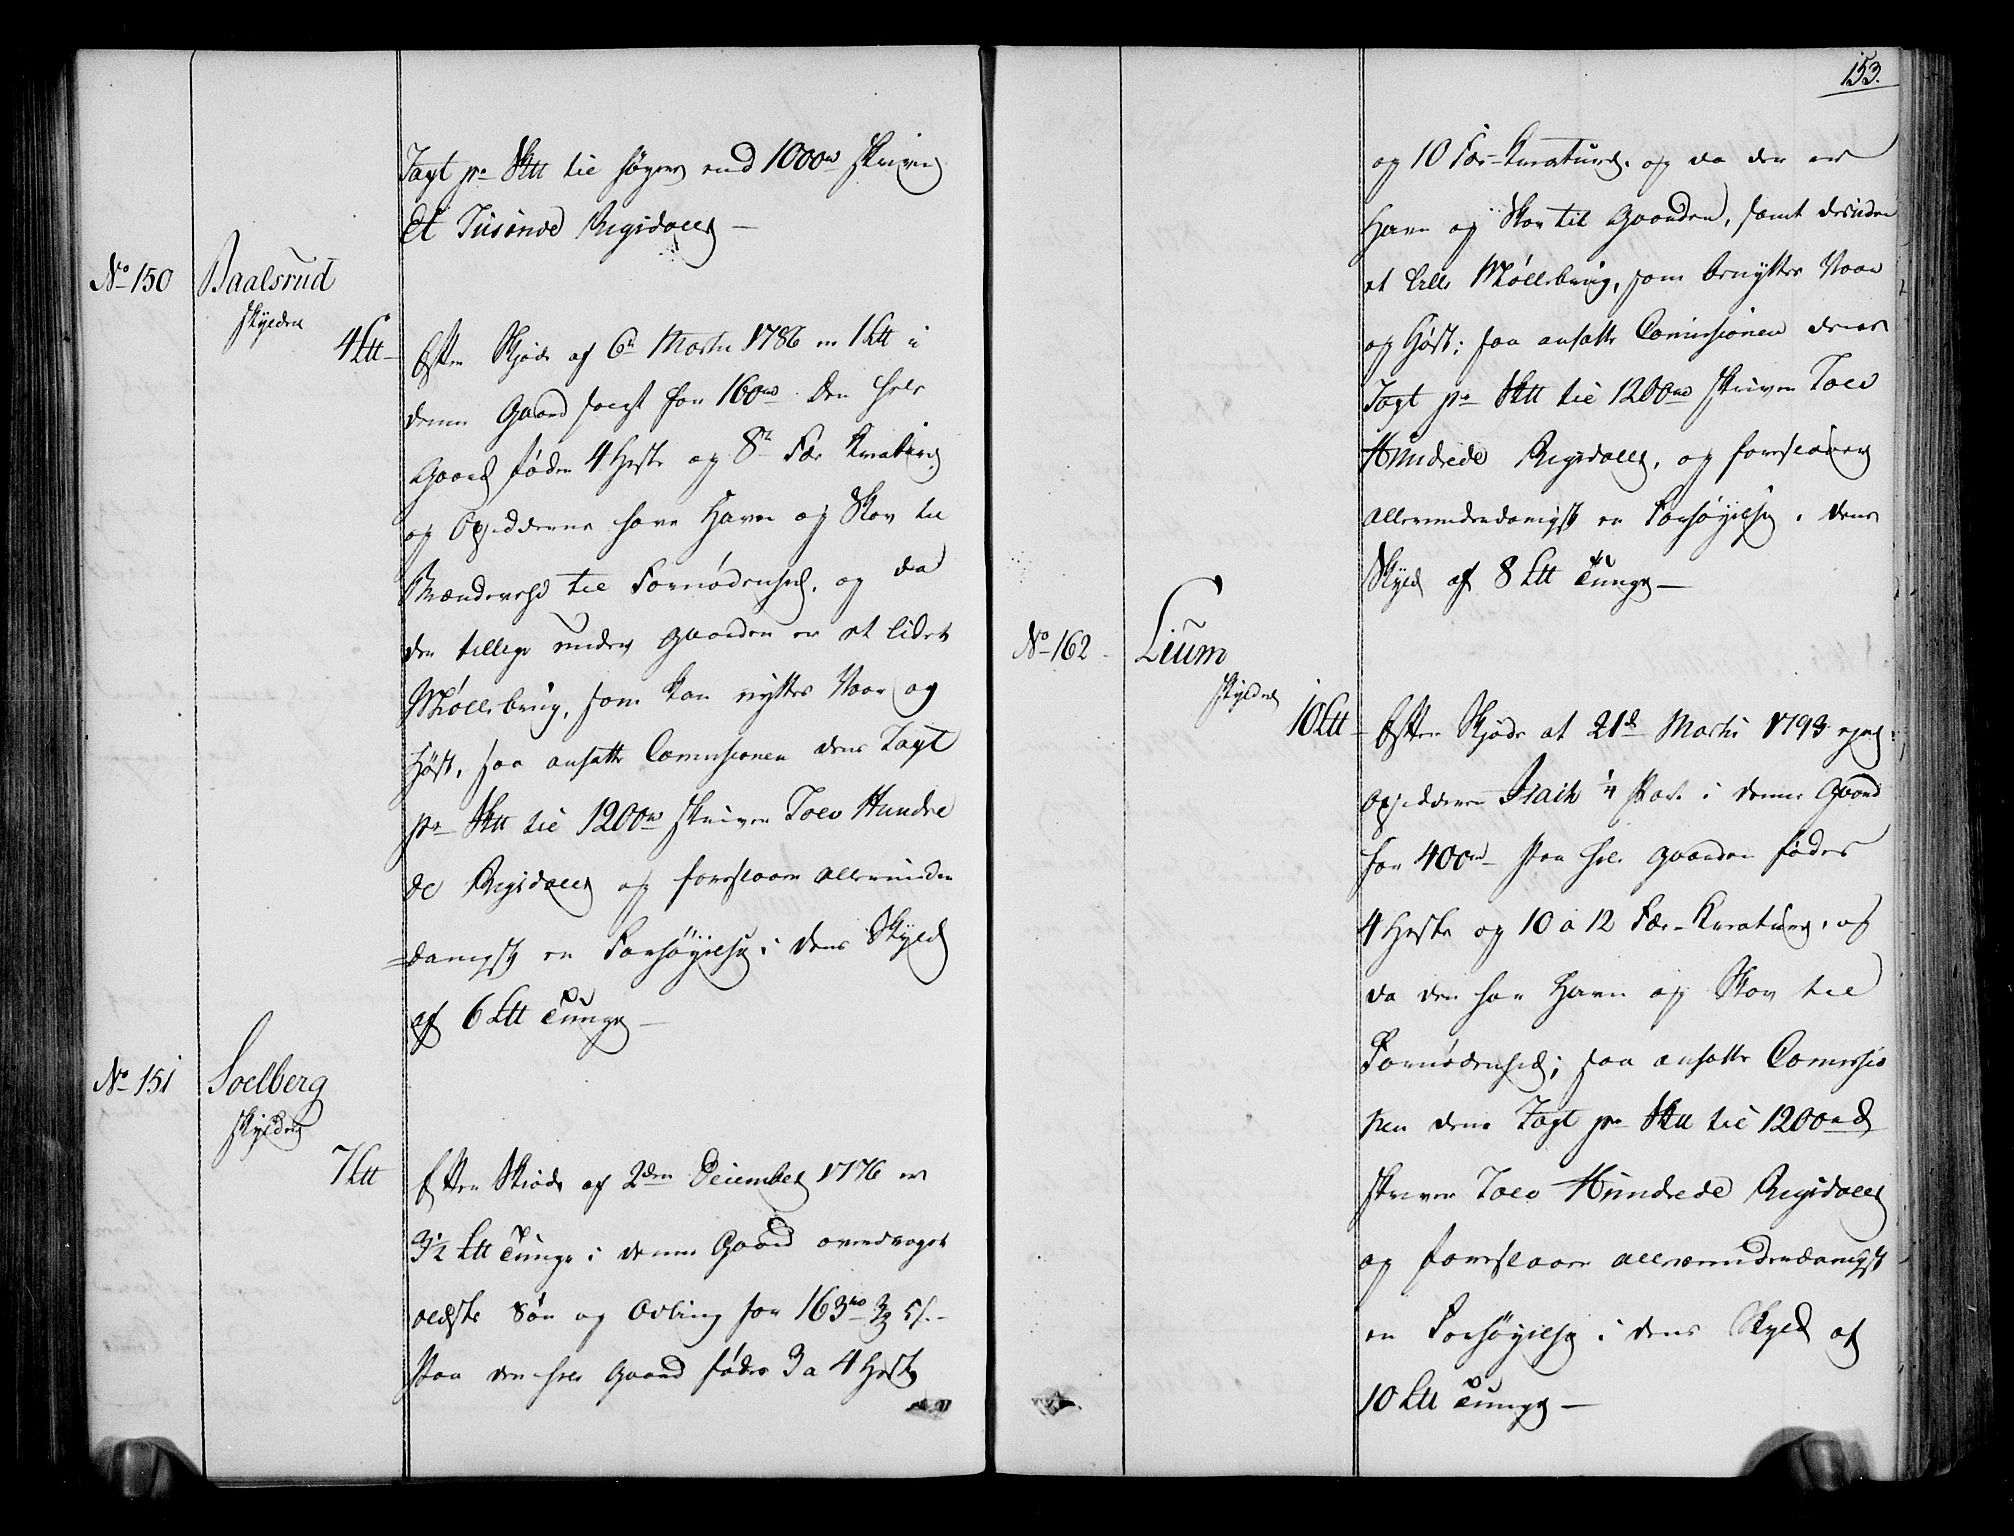 Taxt pr Sktt til høyere end 1000rd skriver
Et Tusende Rigsdaler —
No 150
Baalsrud
skylder
4 Ltt
Efter Skjøde af 6te Martii 1786 er 1 Ltt i
denne Gaard solgt for 160rd. Den hele
Gaard føder 4 Heste og 8te Fæe Kreaturer
og Opsidderne have Havn og Skov til
Brændeved til Fornødenhed, og da
der tillige under Gaarden er et lidet
Møllebrug, som kan nyttes Vaar og
Høst, saa ansatte Comissionen dens Taxt
pr Sktt til 1200rd skriver Tolv Hundre
de Rigsdaler og foreslaaer allerunder
=danigst en Forhøyelse i dens Skyld
af 6 Ltt Tunge —
No 151
Soelberg
skylder
7 Ltt
Efter Skiøde af 2den December 1776 er
3½ Ltt Tunge i denne Gaard overdraget
ældste Søn og Odling for 163rd 3 5/. —
Paa den hele Gaard fødes 3 a 4 Heste
153.
og 10 Fæe-Kreaturer. og da der er
Havn og Skov til Gaarden, samt desuden
et lille Møllebrug, som benyttes Vaar
og Høst; saa ansatte Comissionen denes
Taxt pr Sktt til 1200rd skriver Tolv
Hundrede Rigsdaler, og foreslaaer
allerunderdanigst en Forhøyelse i dens
Skyld af 8 Ltt Tunge —
No 162
Lium
skylder
10 Ltt
Efter Skjøde at 21de Martii 1793 ejer
Opsidderen Isach ¼ Part i denne Gaard
for 400rd Paa hele Gaarden fødes
4 Heste og 10 a 12 Fæe-Kreaturer, og
da den har Havn og Skov til
Fornødenhed; saa ansatte Comissio
nen dens Taxt pr Sktt til 1200rd
skriver Tolv Hundrede Rigsdaler
og foreslaaer allerunderdanigst
en Forhøyelse i dens Skyld af
10 Ltt Tunge —